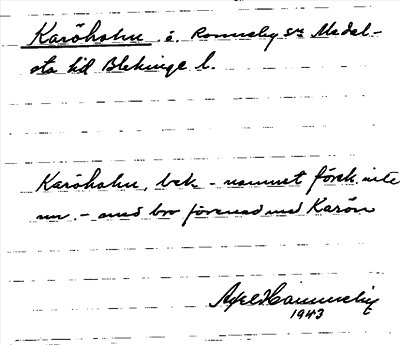 Karöholm i. Ronneby sn Medel-
sta hd Blekinge l.
Karöholm, bek. - namnet förek. inte
nu. - med bro förenad med Karön
Axel 
1943